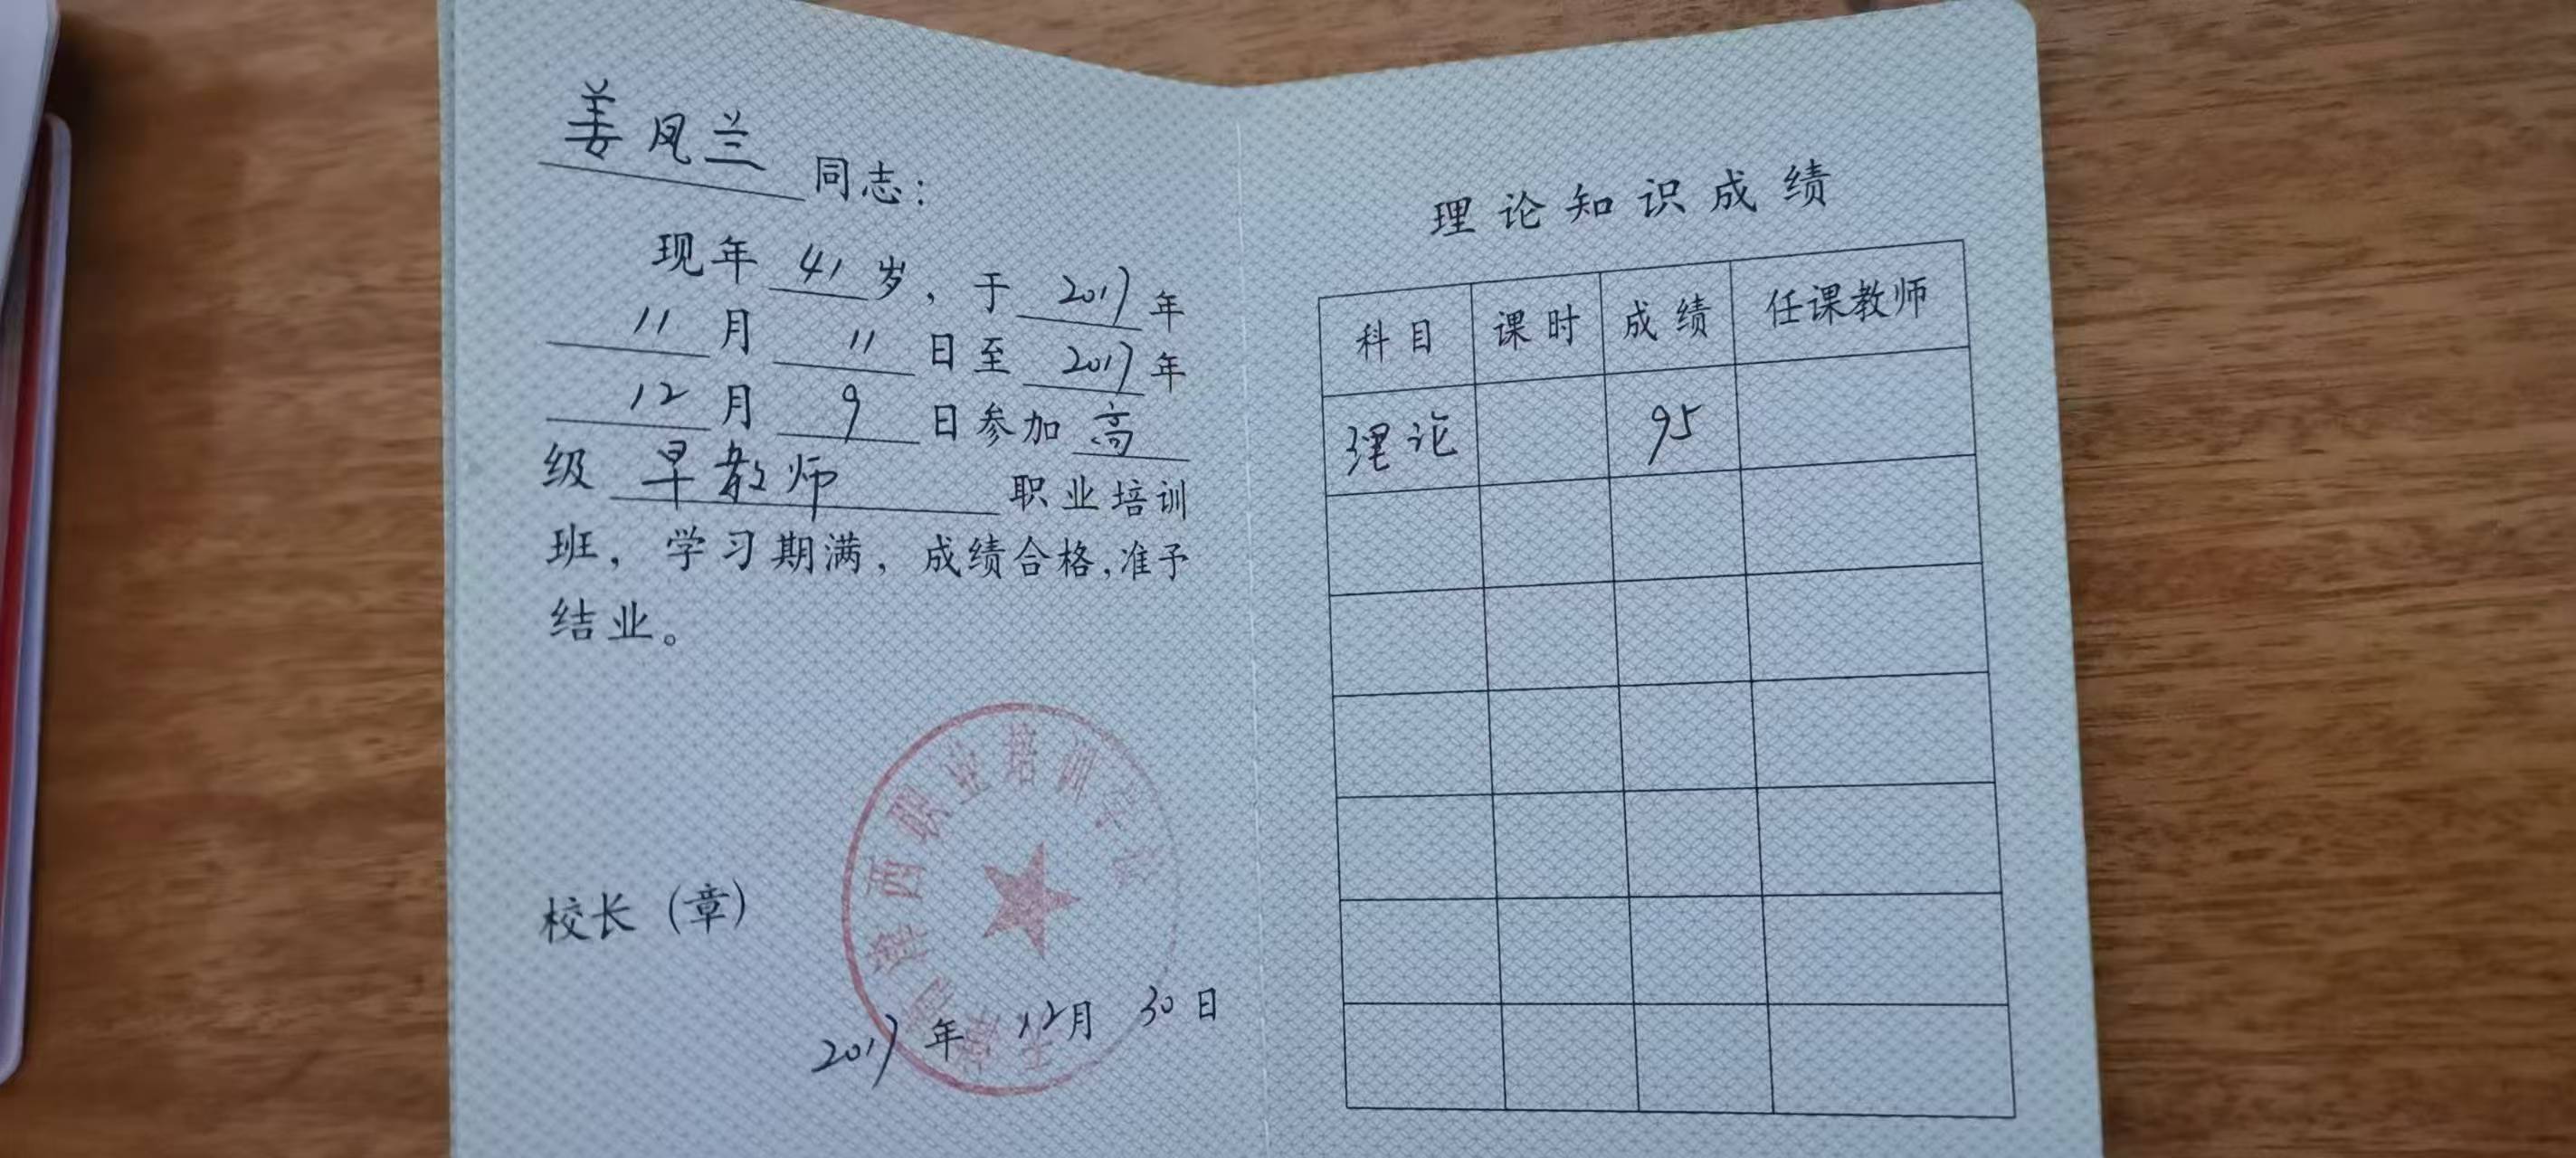 姜凤兰 同志：
现年 41 岁，于 2017 年
11 月 11 日至 2017 年
12 月 9 日参加 高
级 早教师 职业培训
班，学习期满，成绩合格，准予
结业。
西职业培训学
校长（章）
2017 年 12 月 30 日
理论知识成绩
科目 课时 成绩 任课教师
理论 95